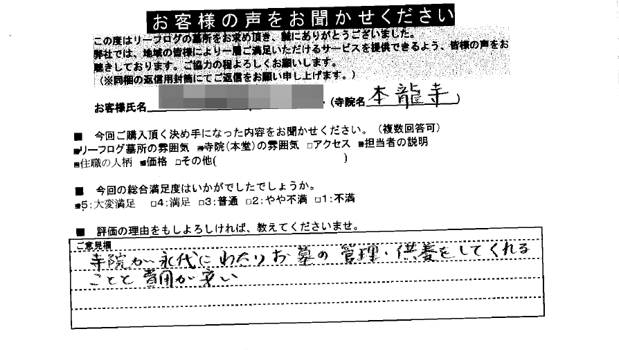 お客様の声をお聞かせください
この度はリーフログの墓所をお求め頂き、誠にありがとうございました。
弊社では、地域の皆様により一層ご満足いただけるサービスを提供できるよう、皆様の声をお
聴きしております。ご協力の程よろしくお願いします。
（※同梱の返信用封筒にてご返信をお願い申し上げます。）
お客様氏名 （寺院名 本龍寺）
■ 今回ご購入頂く決め手になった内容をお聞かせください。（複数回答可）
■リーフログ墓所の雰囲気 ■寺院（本堂）の雰囲気 □アクセス ■担当者の説明
■住職の人柄 ■価格 □その他（ ）
■ 今回の総合満足度はいかがでしたでしょうか。
■5:大変満足 □4:満足 □3:普通 □2:やや不満 □1:不満
■ 評価の理由をもしよろしければ、教えてくださいませ。
ご意見欄
寺院が永代にわたりお墓の管理・供養をしてくれる
ことと費用が安い